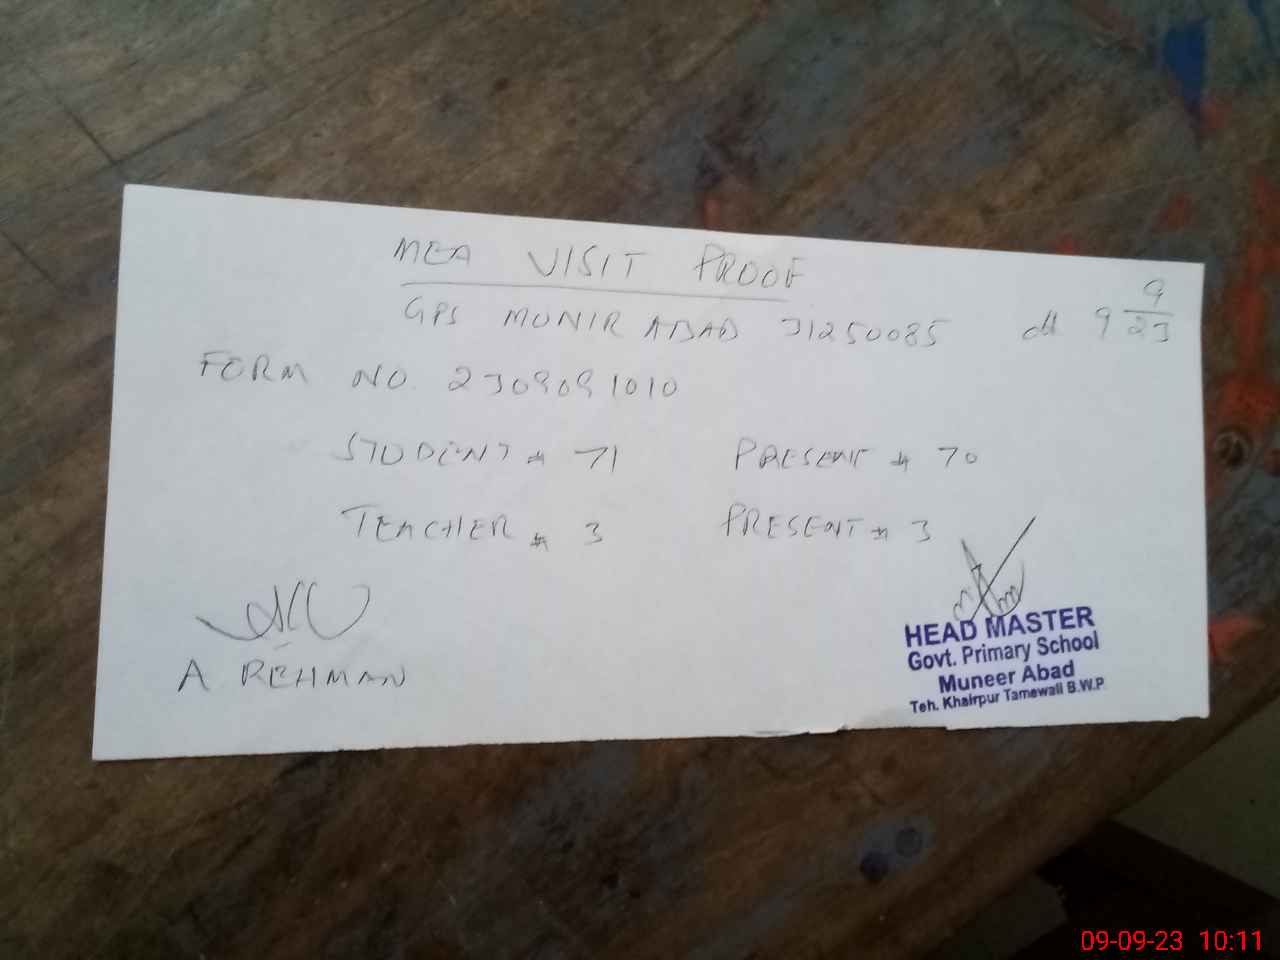 MEA VISIT PROOF
GPS MUNIR ABAD 31250085 dt 9 9/23
FORM NO. 2309091010
STUDENT # 71 PRESENT # 70
TEACHER # 3 PRESENT # 3
A REHMAN
HEAD MASTER
Govt. Primary School
Muneer Abad
Teh. Khairpur Tamewali B.W.P
09-09-23 10:11